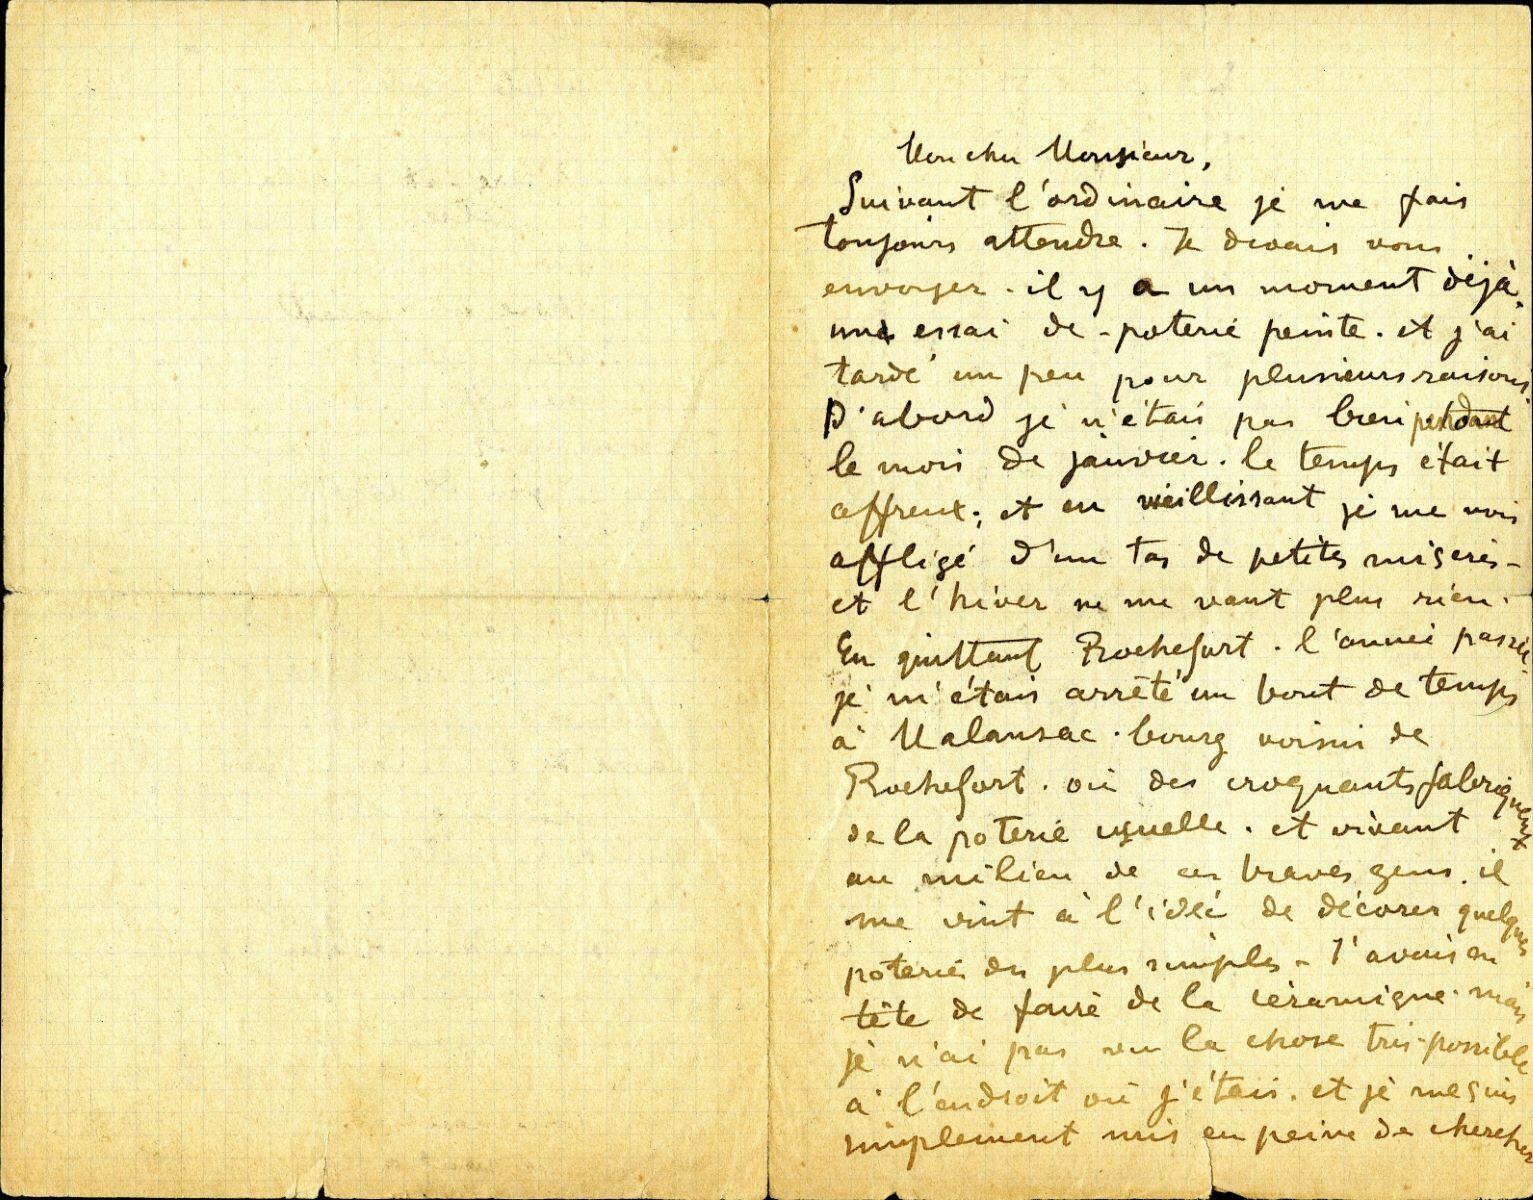 Mon cher Monsieur,
Suivant l'ordinaire je me fais
toujours attendre. Je devais vous
envoyer. il y a un moment déjà.
une essai de poterie peinte. et j'ai
tardé un peu pour plusieurs raisons.
D'abord je n'étais pas bien pendant
le mois de janvier. le temps était
affreux; et en vieillissant je me vois
affligé d'un tas de petites misères -
et l'hiver ne me vaut plus rien.
En quittant Rochefort. l'année passée.
je m'étais arrêté un bout de temps
à Malansac. bourg voisin de
Rochefort. où des croquants fabriquent
de la poterie usuelle. et vivant
au milieu de ces braves gens. il
me vint à l'idée de décorer quelques
poteries des plus simples - J'avais en
tête de faire de la céramique. mais
je n'ai pas vu la chose très possible
à l'endroit où j'étais. et je me suis
simplement mis en peine de chercher